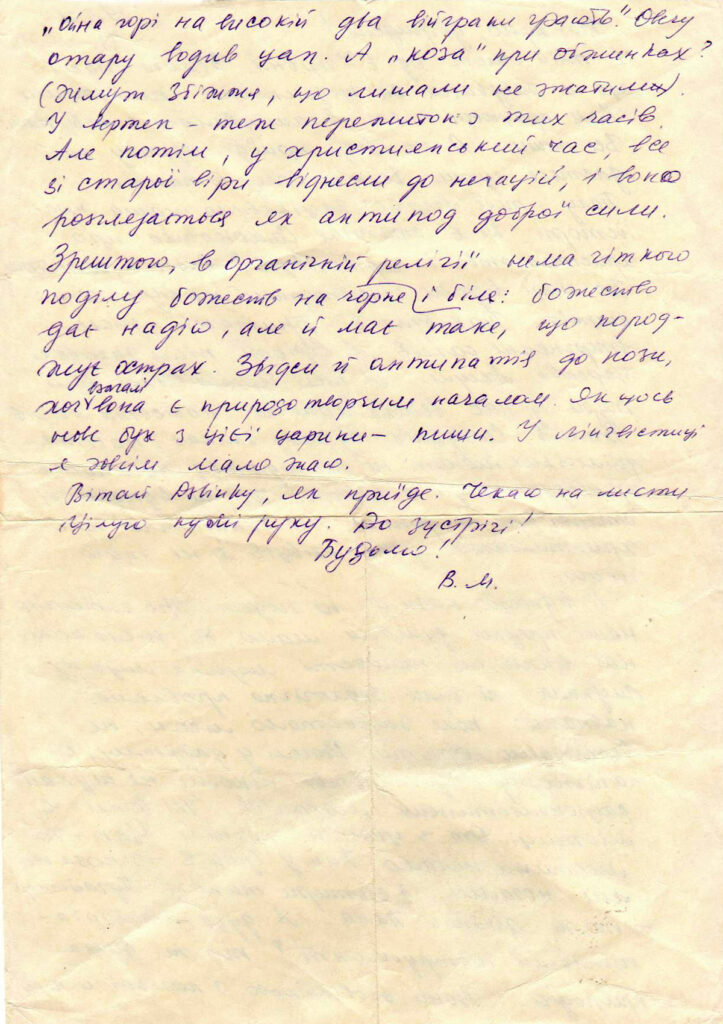 „Ой на горі на високій два війграки грають". Овчу
отару водив цап. А „коза" при обжинках?
(жмут збіжжя, що лишали не зжатим).
У вертеп – теж пережиток з тих часів.
Але потім, у християнський час, все
зі старої віри віднесли до негацій, і воно
розглядається як антипод доброї сили.
Зрештою, в органічній релігії нема чіткого
поділу божеств на чорне і біле: божество
дає надію, але й має таке, що пород-
жує острах. Звідси й антипатія до кози,
хоч взагалі вона є природотворчим началом. Якщось
нове був з цієї царини – пиши. У лінгвістиці
я зовсім мало знаю.
Вітай як приїде. Чекаю на листи.
Цілую руку. До зустрічі!
Будьмо!
В. М.